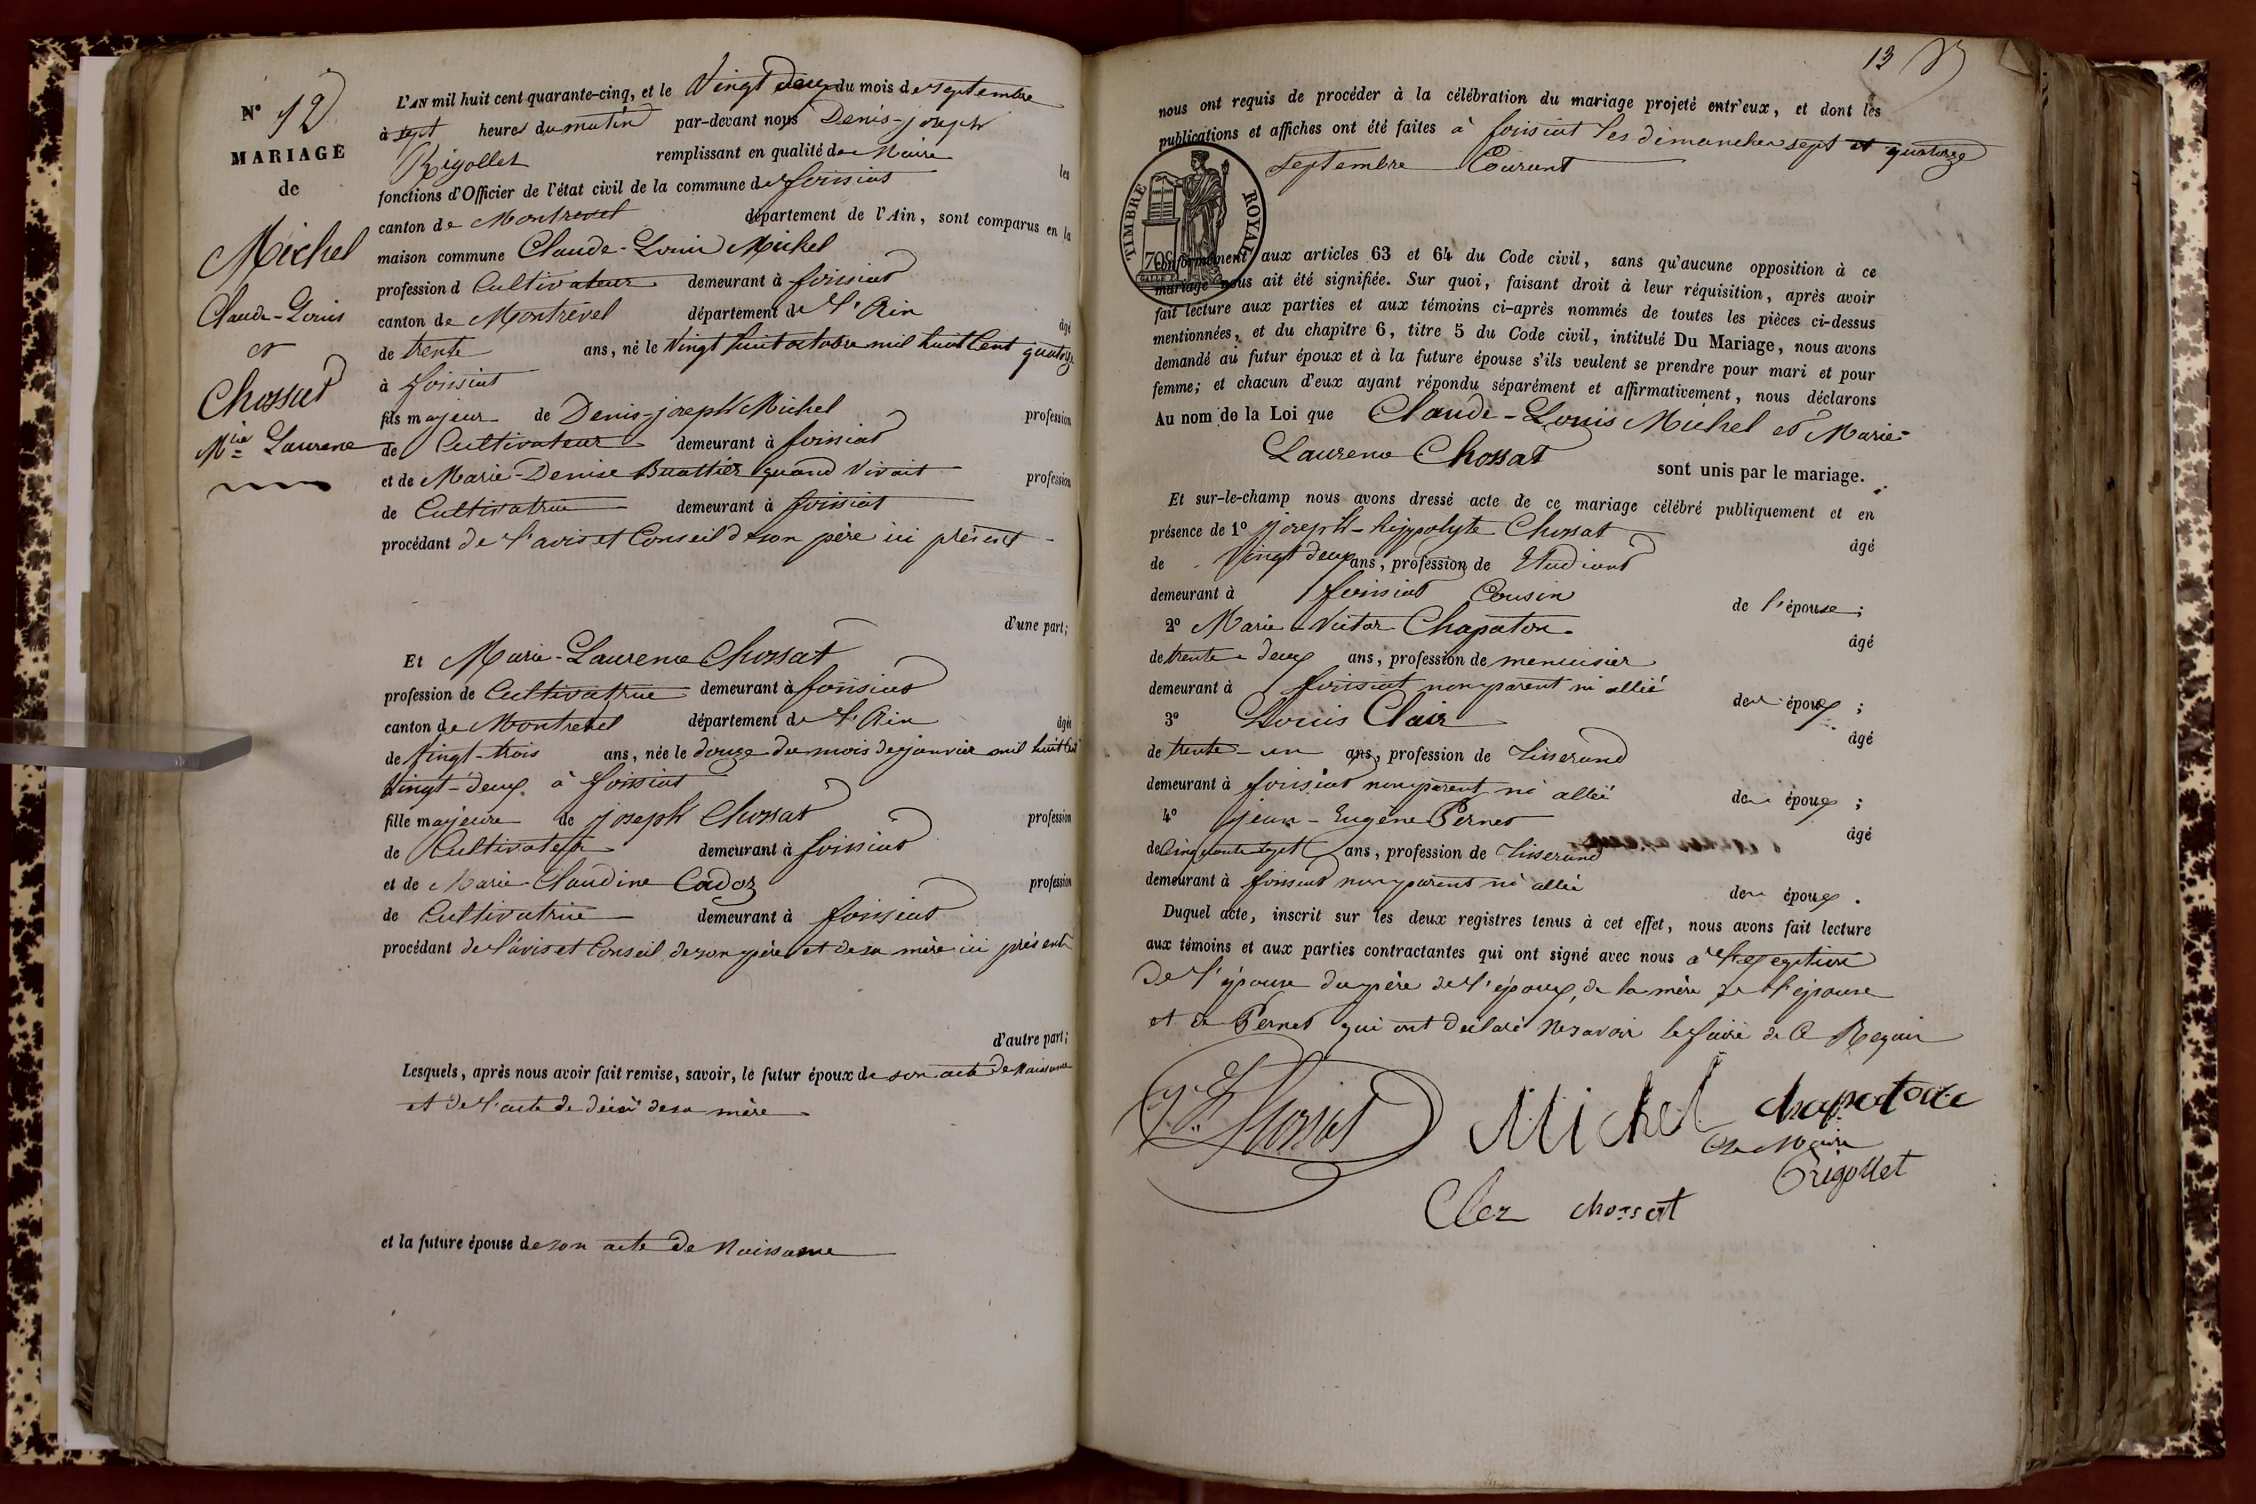 N° 12
MARIAGE
de
Michel
Claude-Louis
et
Chossat
Mie Laurence
L'AN mil huit cent quarante-cinq, et le Vingt deux du mois de septembre
à sept heures du matin par-devant nous Denis-joseph
Rigollet remplissant en qualité de Maire les
fonctions d'Officier de l'état civil de la commune de foissiat
canton de Montrevel département de l'Ain, sont comparus en la
maison commune Claude-Louis Michel
profession d Cultivateur demeurant à foissiat
canton de Montrevel département de l'Ain âgé
de trente ans, né le Vingt huit octobre mil huit Cent quatorze
à foissiat
fils majeur de Denis-joseph Michel profession
de Cultivateur demeurant à foissiat
et de Marie-Denise Buattier quand Vivait profession
de Cultivatrice demeurant à foissiat
procédant de l'avis et Conseil de son père ici présent
d'une part;
Et Marie-Laurence Chossat
profession de Cultivatrice demeurant à foissiat
canton de Montrevel département de l'Ain âgée
de Vingt-trois ans, née le douze du mois de janvier mil huit Cent
Vingt-deux à foissiat
fille majeure de joseph Chossat profession
de Cultivateur demeurant à foissiat
et de Marie-Claudine Cadoz profession
de Cultivatrice demeurant à foissiat
procédant de l'avis et Conseil de son père et de sa mère ici présents
d'autre part;
Lesquels, après nous avoir fait remise, savoir, le futur époux de son acte de Naissance
et de l'acte de décès de sa mère
et la future épouse de son acte de Naissance
13
nous ont requis de procéder à la célébration du mariage projeté entr'eux, et dont les
publications et affiches ont été faites à foissiat les dimanches sept et quatorze
septembre Courant
TIMBRE ROYAL
70c
conformément aux articles 63 et 64 du Code civil, sans qu'aucune opposition à ce
mariage nous ait été signifiée. Sur quoi, faisant droit à leur réquisition, après avoir
fait lecture aux parties et aux témoins ci-après nommés de toutes les pièces ci-dessus
mentionnées, et du chapitre 6, titre 5 du Code civil, intitulé Du Mariage, nous avons
demandé au futur époux et à la future épouse s'ils veulent se prendre pour mari et pour
femme; et chacun d'eux ayant répondu séparément et affirmativement, nous déclarons
Au nom de la Loi que Claude-Louis Michel et Marie-
Laurence Chossat sont unis par le mariage.
Et sur-le-champ nous avons dressé acte de ce mariage célébré publiquement et en
présence de 1° joseph-hyppolyte Chossat âgé
de Vingt deux ans, profession de Etudiant
demeurant à foissiat Cousin de l'épouse;
2° Marie-Victor Chapaton âgé
de trente-deux ans, profession de menuisier
demeurant à foissiat non parent ni allié des époux;
3° Louis Clair âgé
de trente-un ans, profession de Tisserand
demeurant à foissiat non parent ni allié des époux;
4° jean-Eugène Pernet âgé
de Cinquante sept ans, profession de Tisserand
demeurant à foissiat non parent ni allié des époux.
Duquel acte, inscrit sur les deux registres tenus à cet effet, nous avons fait lecture
aux témoins et aux parties contractantes qui ont signé avec nous à l'exception
de l'épouse du père de l'époux, de la mère de l'épouse
et de Pernet qui ont déclaré ne savoir le faire de Ce Requis
J. H. Chossat Michel chapaton
Le Maire
Rigollet
Cler chossat